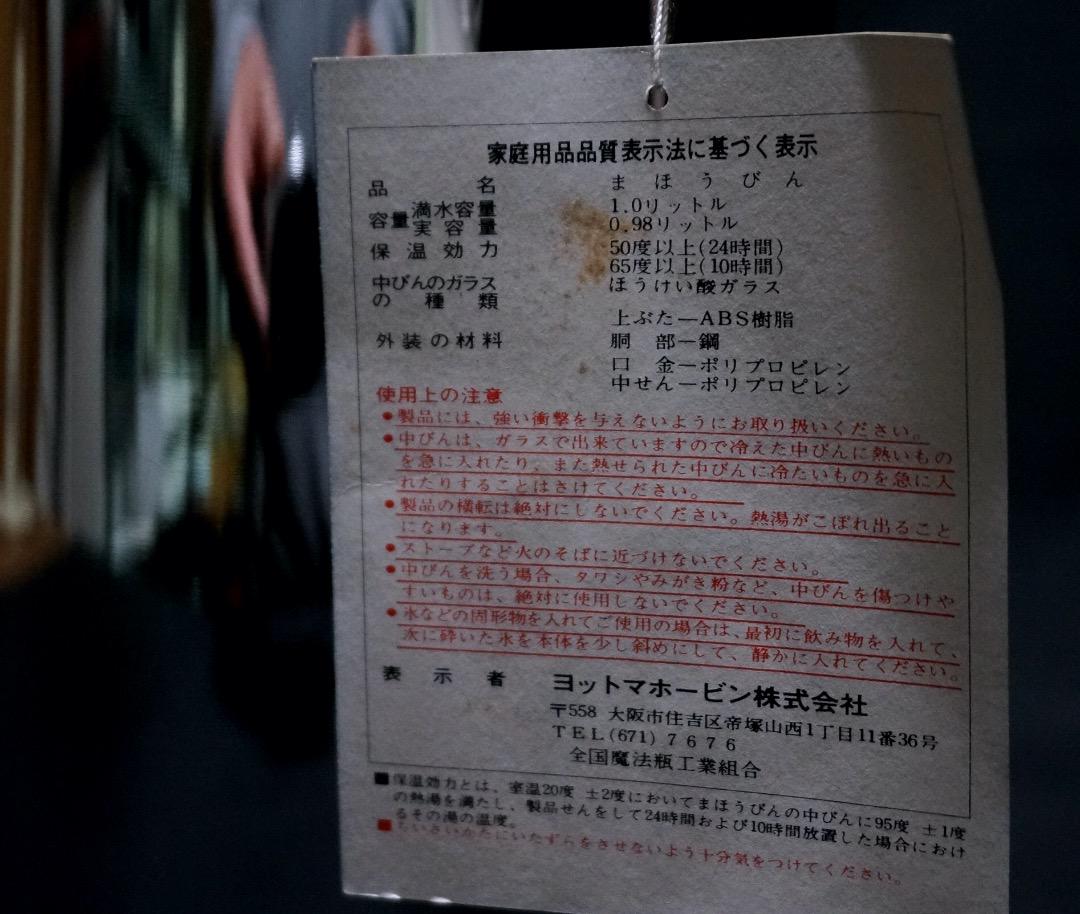 家庭用品品質表示法に基づく表示
品名 まほうびん
容量 満水容量 1.0リットル
実容量 0.98リットル
保温効力 50度以上(24時間)
65度以上(10時間)
中びんのガラスの種類 ほうけい酸ガラス
外装の材料 上ぶた―ABS樹脂
胴部―鋼
口金―ポリプロピレン
中せん―ポリプロピレン
使用上の注意
●製品には、強い衝撃を与えないようにお取り扱いください。
●中びんは、ガラスで出来ていますので冷えた中びんに熱いもの
を急に入れたり、また熱せられた中びんに冷たいものを急に入
れたりすることはさけてください。
●製品の横転は絶対にしないでください。熱湯がこぼれ出ること
になります。
●ストーブなど火のそばに近づけないでください。
●中びんを洗う場合、タワシやみがき粉など、中びんを傷つけや
すいものは、絶対に使用しないでください。
●氷などの固形物を入れてご使用の場合は、最初に飲み物を入れて、
次に砕いた氷を本体を少し斜めにして、静かに入れてください。
表示者 ヨットマホービン株式会社
〒558 大阪市住吉区帝塚山西1丁目11番36号
TEL(671)7676
全国魔法瓶工業組合
■保温効力とは、室温20度 ±2度においてまほうびんの中びんに95度 ±1度
の熱湯を満たし、製品せんをして24時間および10時間放置した場合におけ
るその湯の温度。
■ちいさいかたにいたずらをさせないよう十分気をつけてください。